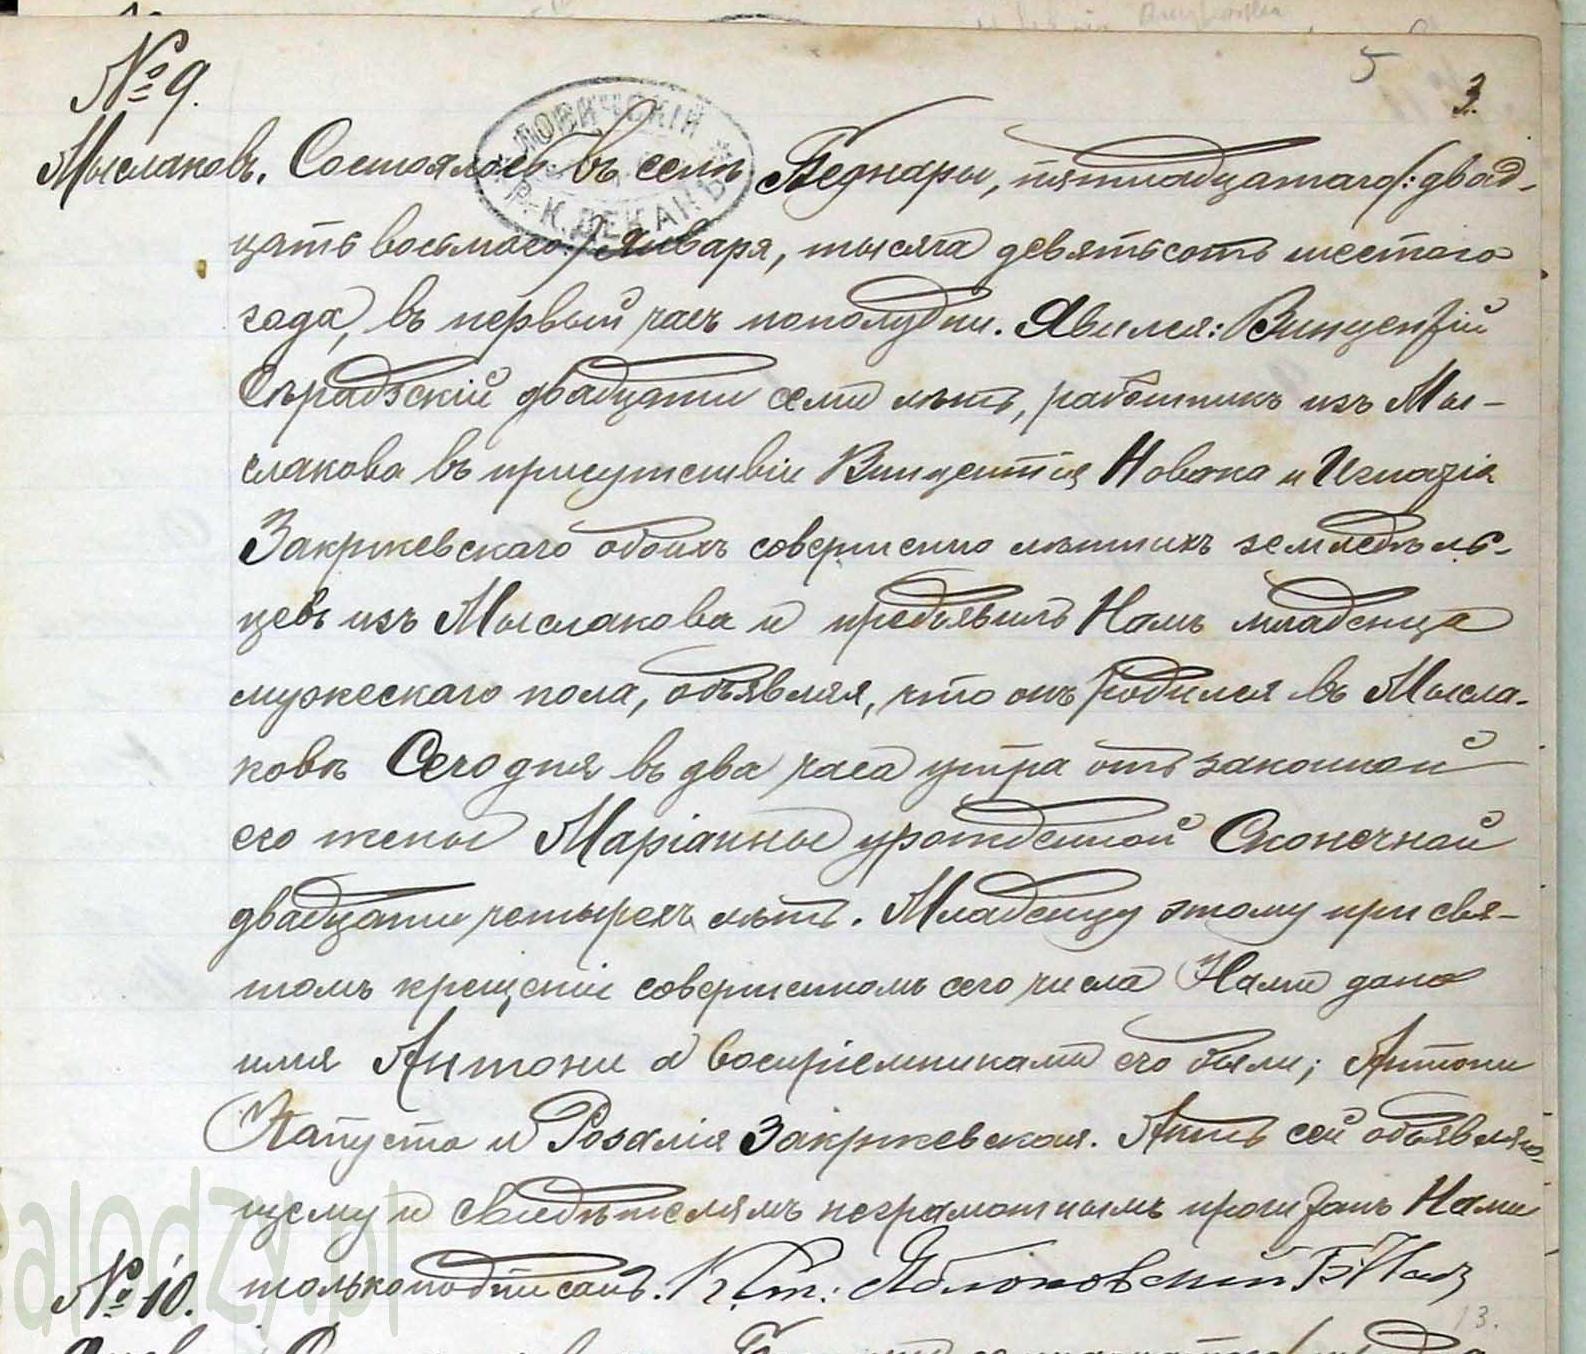 5 3.
№ 9.
ЛОВИЧСКІЙ
Р.-К. ДЕКАНЪ
Мыслаковъ. Состоялось въ селѣ Беднары, пятнадцатаго /: двад-
цать восьмаго :/ Января, тысяча девятьсотъ шестаго
года, въ первый часъ пополудни. Явился: Винцентій
Сѣрадзскій двадцати семи лѣтъ, работникъ изъ Мы-
слакова въ присутствіи Винцентія Новака и Игнація
Закржевскаго обоихъ совершенно лѣтнихъ земледѣль-
цевъ изъ Мыслакова и предъявилъ Намъ младенца
мужескаго пола, объявляя, что онъ родился въ Мысла-
ковѣ Сего дня въ два часа утра отъ законной
его жены Маріанны урожденной Сконечной
двадцати четырехъ лѣтъ. Младенцу этому при свя-
томъ крещеніи совершенномъ сего числа Нами дано
имя Антони а воспріемниками его были; Антони
Капуста и Розалія Закржевская. Актъ сей объявляю-
щему и свидѣтелямъ неграмотнымъ прочитанъ Нами
только подписанъ. Яблоновскій
№ 10.
13.
alodzy.pl